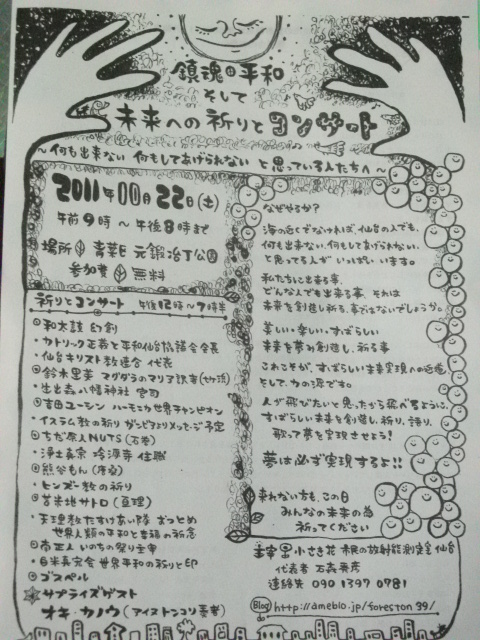 鎮魂 平和
そして
未来への祈りとコンサート
〜何も出来ない 何もしてあげられない と思っている人たちへ〜
2011年 10月 22日(土)
午前9時 〜 午後8時まで
場所 青葉区 元鍛冶丁公園
参加費 無料
祈りとコンサート 午後12時〜7時半
和太鼓
・カトリック正義と平和仙台協議会会長
・仙台キリスト教連合 代表
鈴木里美 マグダラのマリア
・生出森八幡神社 宮司
吉田ユーシン ハーモニカ世界チャンピオン
・イスラム教の祈り
ちだ原人NUTS(石巻)
・浄土真宗 住職
熊谷もん(唐桑)
・ヒンズー教の祈り
苫米地サトロ(亘理)
・天理教たすけあい隊 おつとめ
世界人類の平和と幸福の祈念
南正人 いのちの祭り主宰
・白光真宏会 世界平和の祈りと印
ゴスペル
サプライズゲスト
オキ・カノウ(アイヌトンコリ奏者)
なぜやるか?
海の近くでなければ、仙台の人でも、
何も出来ない、何もしてあげられない、
と思ってる人が いっぱい います。
私たちに出来る事、
どんな人でも出来る事、それは
未来を創造し祈る、事ではないでしょうか。
美しい・楽しい・すばらしい
未来を夢み創造し、祈る事
これこそが、すばらしい未来実現への近道
そして、力の源です。
人が飛びたいと思ったから飛べたように、
すばらしい未来を創造し、祈り、語り、
歌って夢を実現させよう!
夢は必ず実現するよ!!
来れない方も、この日
みんなの未来の為
祈ってください
主宰 小さき花 市民の放射能測定室 仙台
代表者 石森秀彦
連絡先 090 1397 0781
Blog http://ameblo.jp/foreston39/